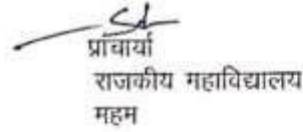 प्राचार्या
राजकीय महाविद्यालय
महम